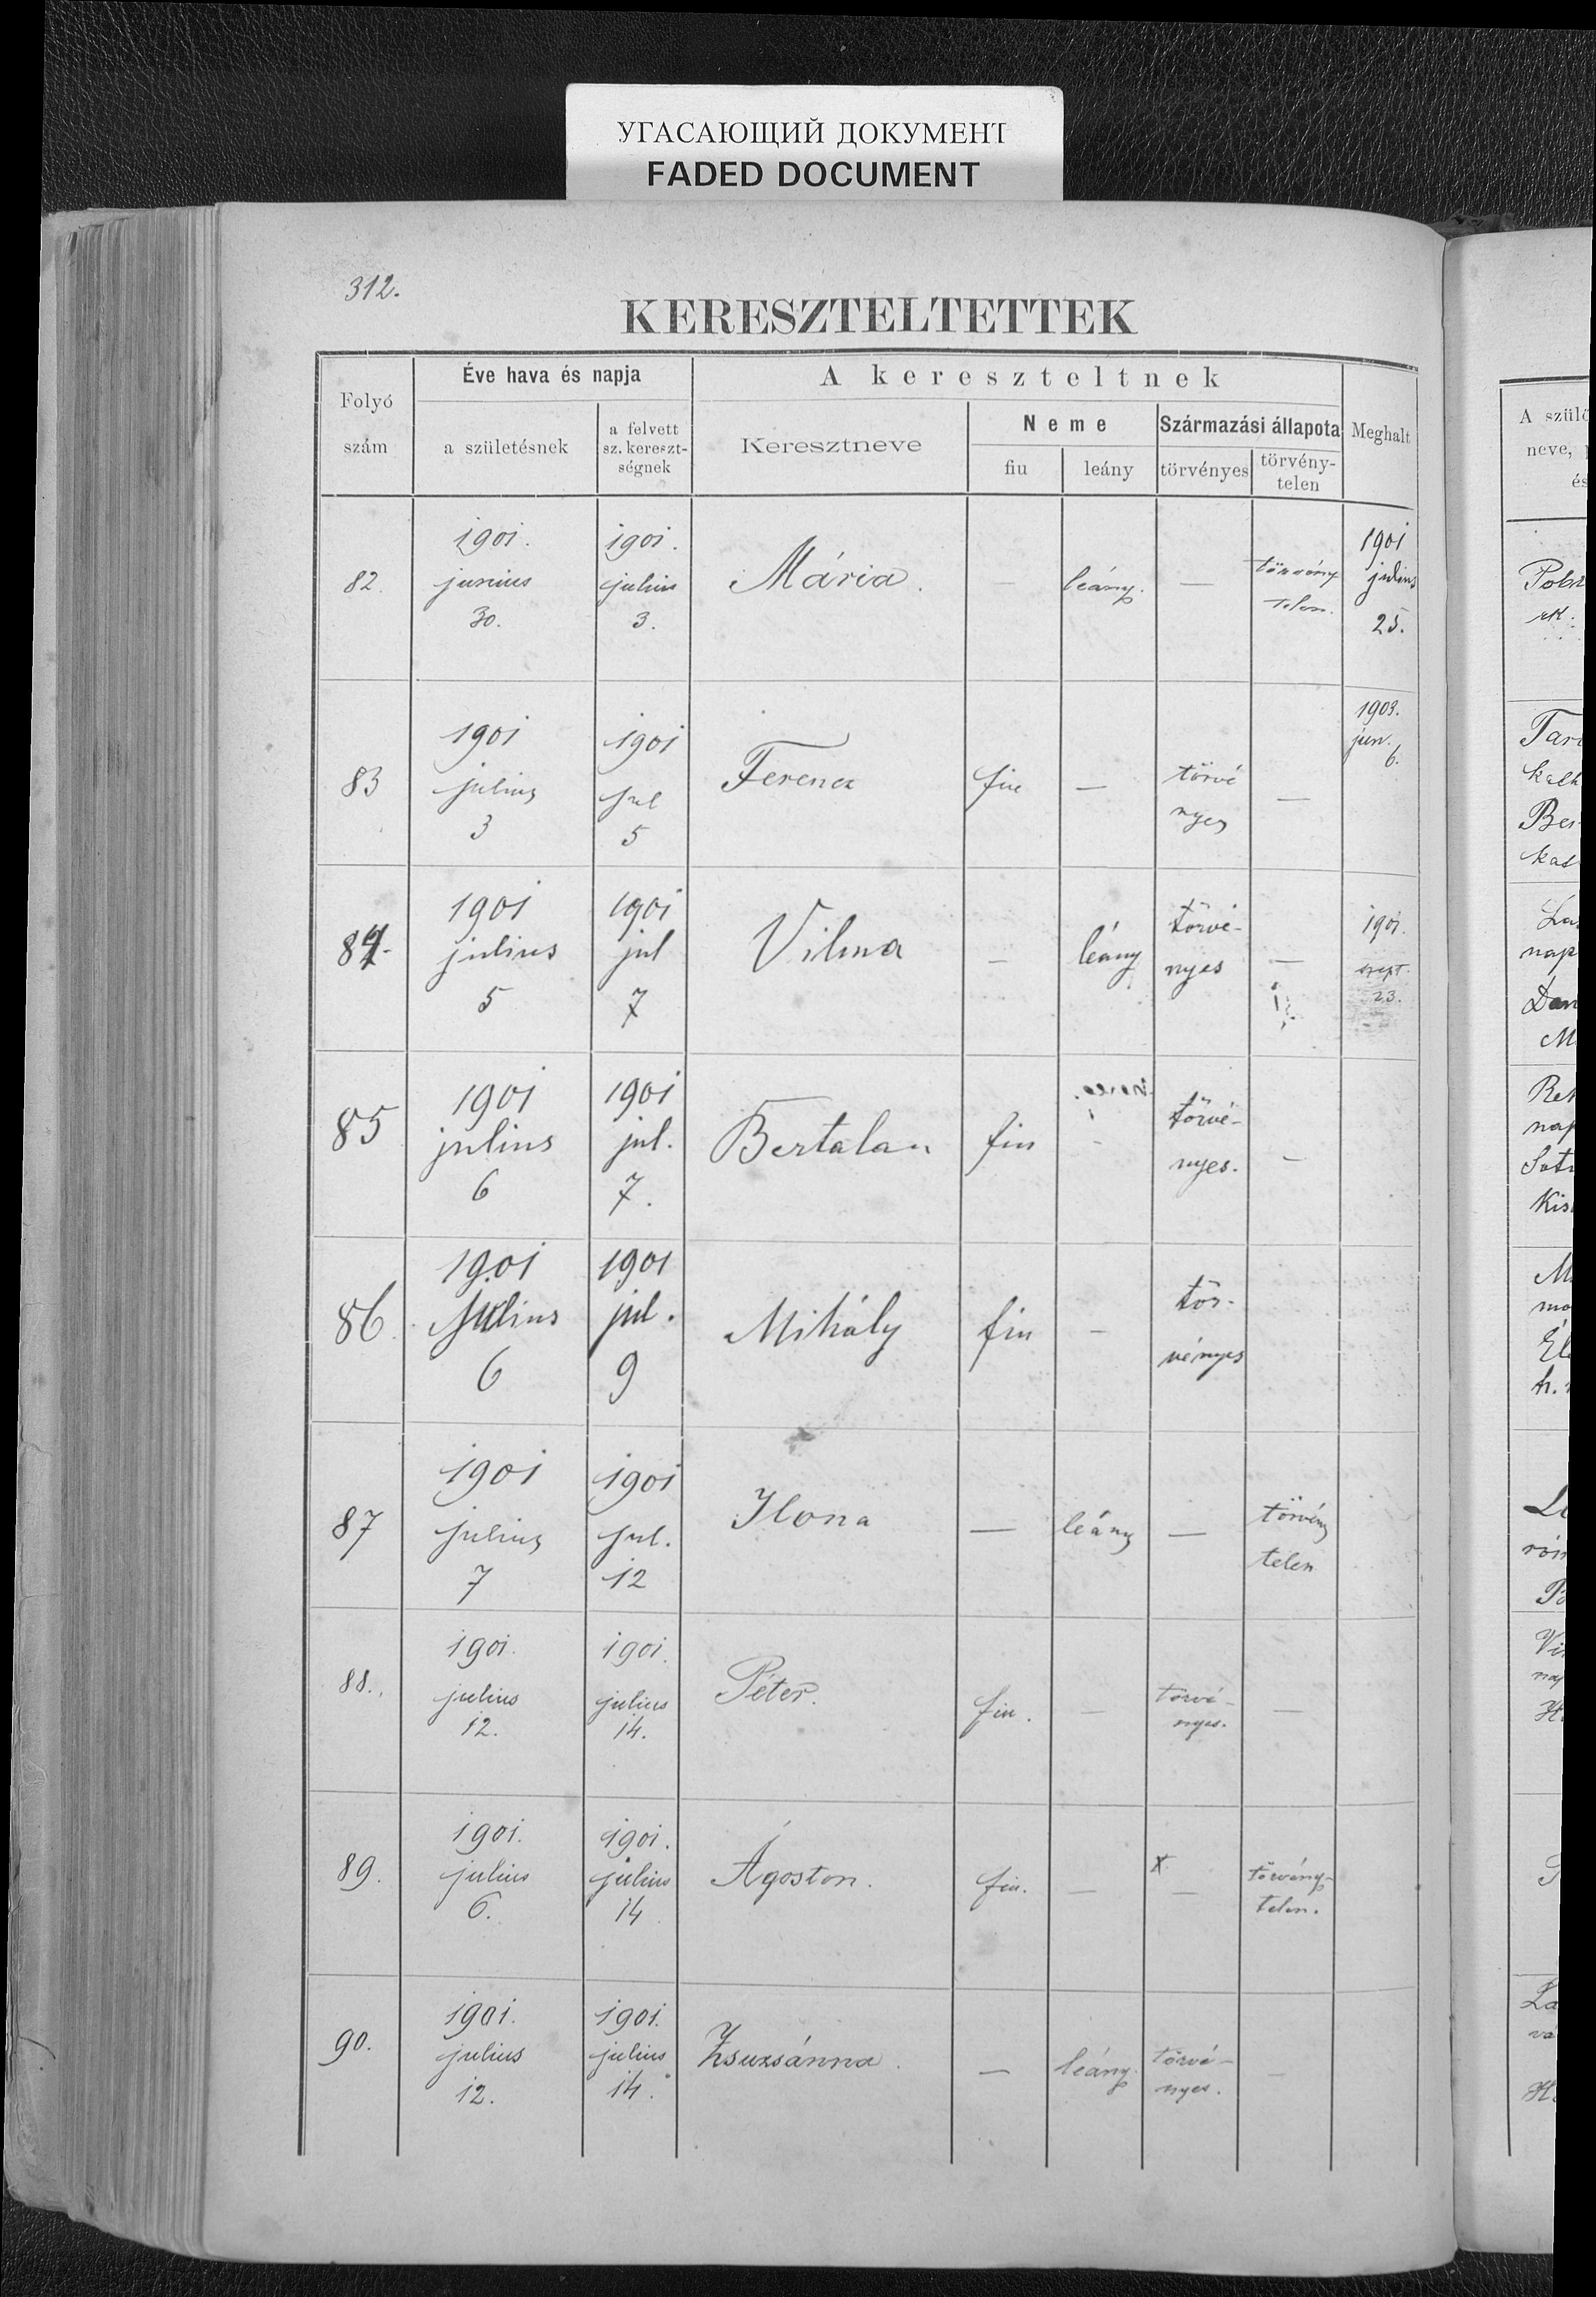 УГАСАЮЩИЙ ДОКУМЕНТ
FADED DOCUMENT
312.
KERESZTELTETTEK
Folyó szám
Éve hava és napja
a születésnek
a felvett sz. kereszt-ségnek
A kereszteltnek
Keresztneve
Neme
fiu
leány
Származási állapota
törvényes
törvény-telen
Meghalt
82. 1901. junius 30. 1901. julius 3. Mária. — leány. — törvény telen. 1901 julius 25.
83 1901 julius 3 1901 jul 5 Ferencz fiu — törvé nyes — 1903. jun. 6.
84. 1901 julius 5 1901 jul 7 Vilma — leány törvé-nyes — 1901. szept. 23.
85 1901 julius 6 1901 jul. 7. Bertalan fiu - törvé-nyes. —
86. 1901 Julius 6 1901 jul. 9 Mihály fiu — tör-vényes
87 1901 julius 7 1901 jul. 12 Ilona — leány — törvény telen
88. 1901. julius 12. 1901. julius 14. Péter. fiu. — törvé-nyes. —
89. 1901. julius 6. 1901. julius 14 Ágoston. fiu. — x — törvény-telen.
90. 1901. julius 12. 1901. julius 14. Zsuzsánna. — leány. törvé-nyes. —
A szülő
neve,
és